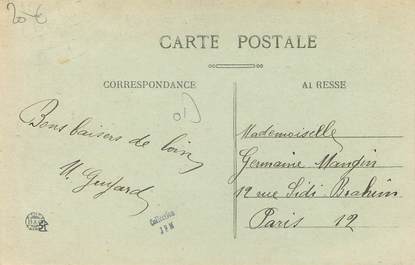 20 €
CARTE POSTALE
CORRESPONDANCE
A1 RESSE
01
Bons baisers de loin
M. Guyard
Mademoiselle
Germaine Mangin
12 rue Sidi-Brahim
Paris 12
Collection
J P M